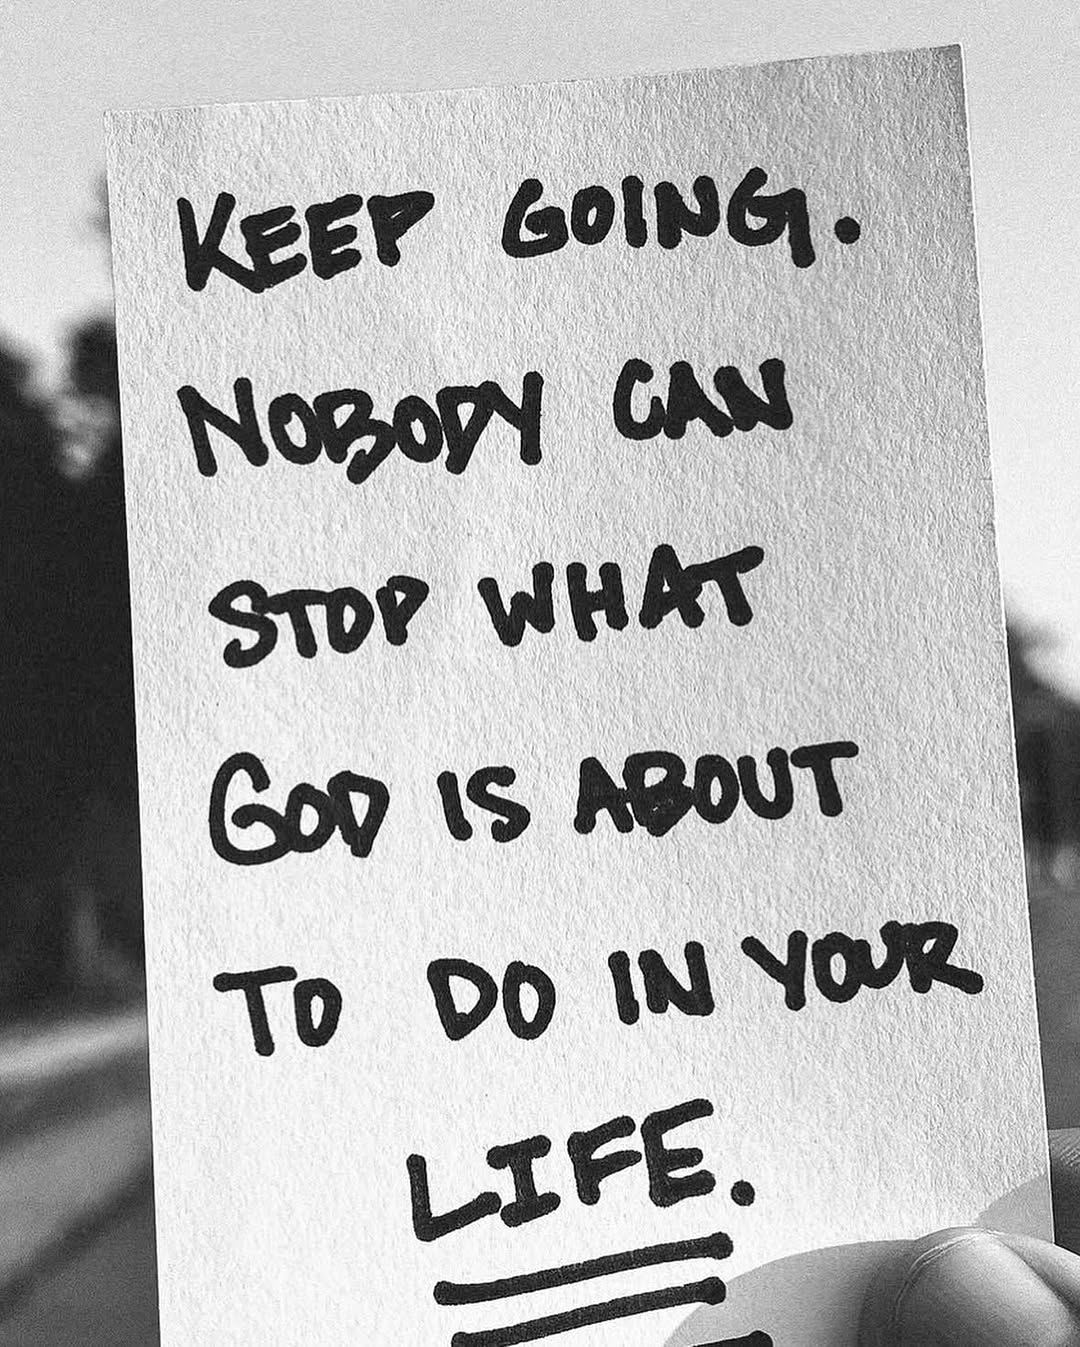 KEEP GOING.
NOBODY CAN
STOP WHAT
GOD IS ABOUT
TO DO IN YOUR
LIFE.